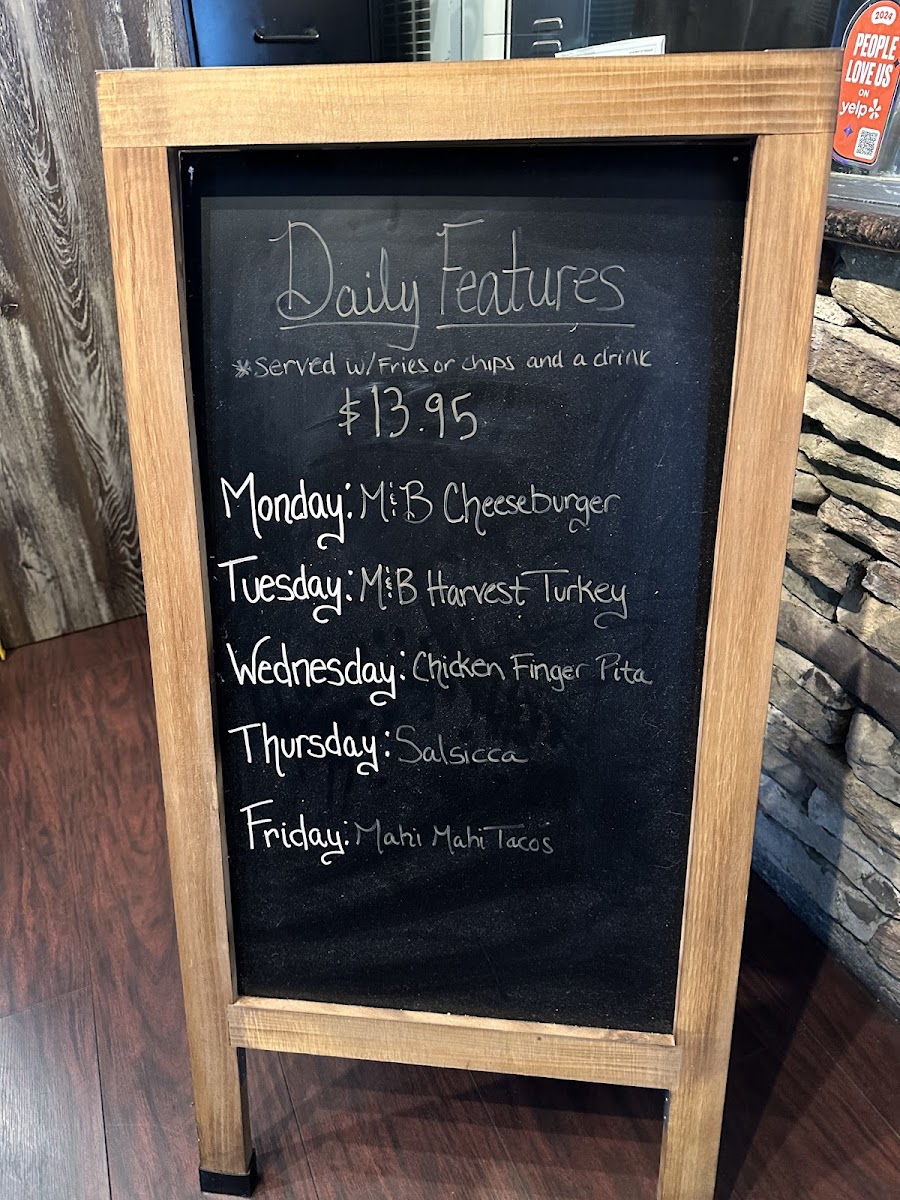 2024
PEOPLE
LOVE US
ON
yelp
Daily Features
*Served w/Fries or chips and a drink
$13.95
Monday: M&B Cheeseburger
Tuesday: M&B Harvest Turkey
Wednesday: Chicken Finger Pita
Thursday: Salsicca
Friday: Mahi Mahi Tacos